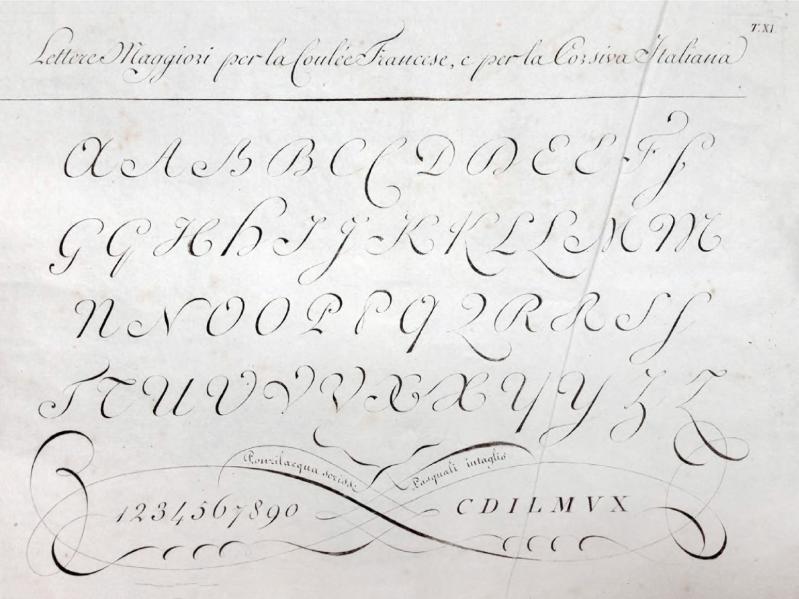 T. XI.
Lettere Maggiori per la Coulée Francese, e per la Corsiva Italiana
A A B B C C D D E E F F
G G H H I J K K L L M M
N N O O P P Q Q R R S S
T T U U V V X X Y Y Z Z
Ponzilacqua scrisse
Pasquali intagliò
1 2 3 4 5 6 7 8 9 0
C D I L M V X